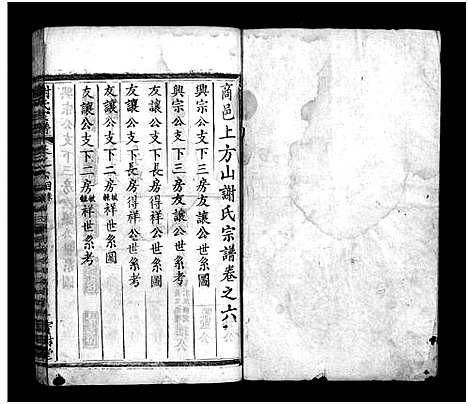 商邑上方山謝氏宗譜卷之六
興宗公支下三房友讓公世系圖
興宗公支下三房友讓公世系考
友讓公支下長房得祥公世系圖
友讓公支下長房得祥公世系考
友讓公支下二房祥世系圖
友讓公支下二房祥世系考